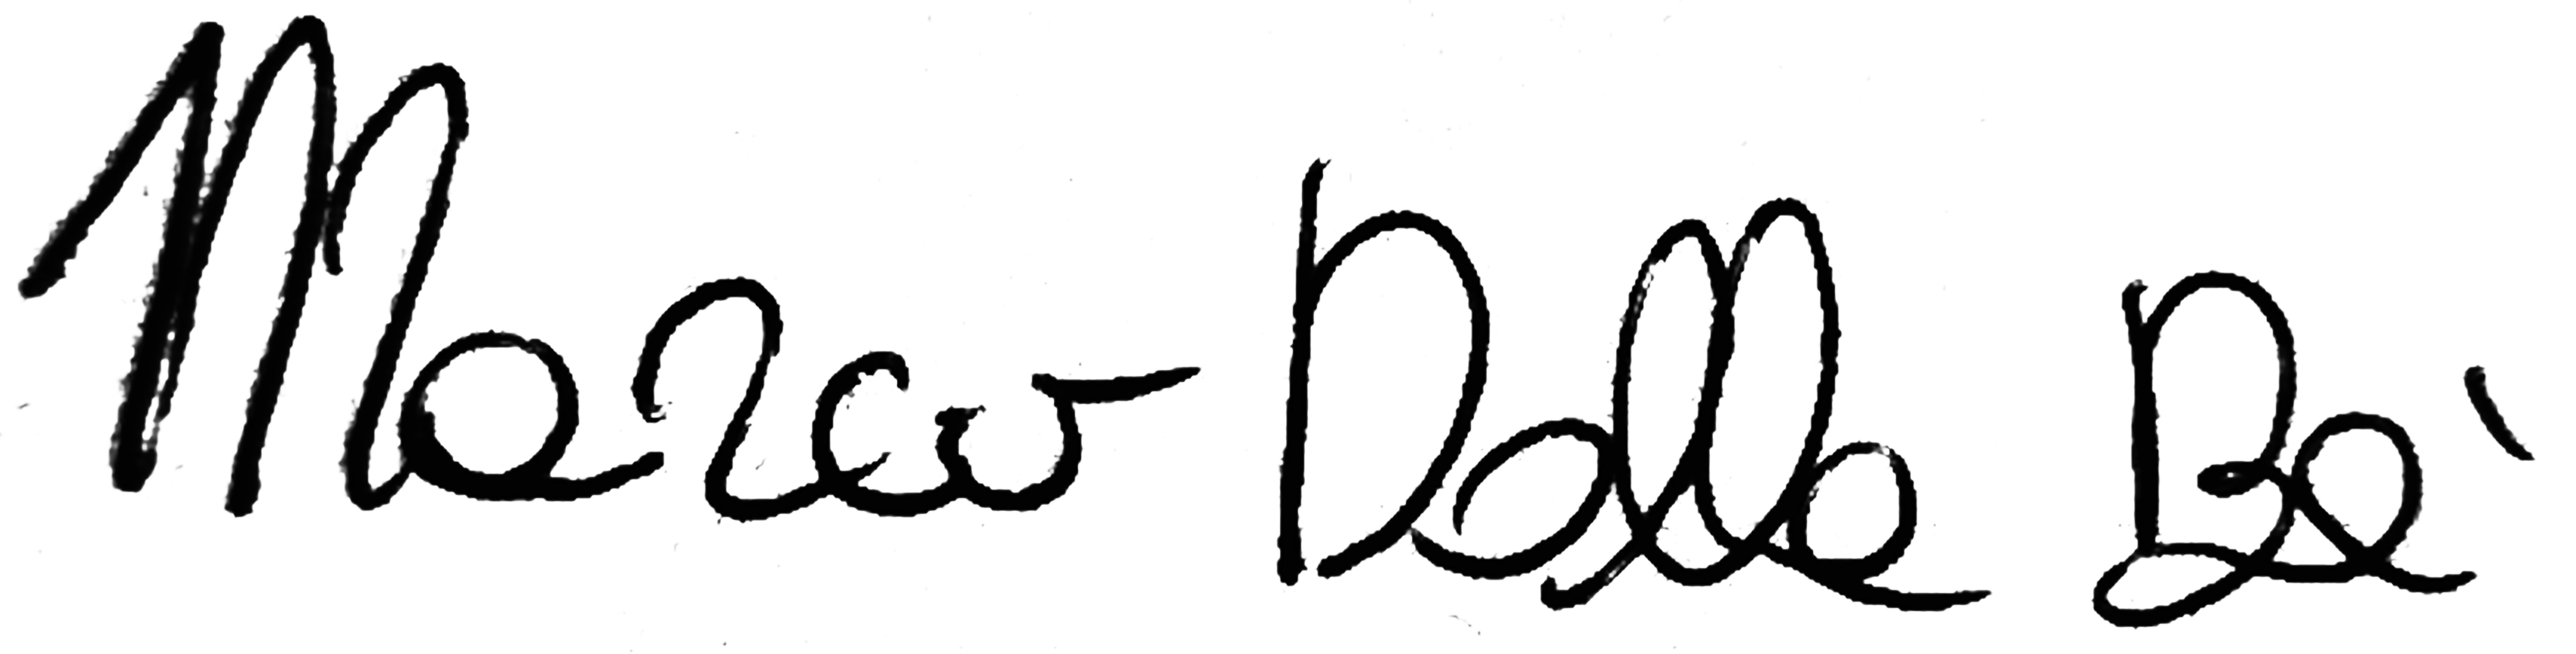 Marco Dalla Bà